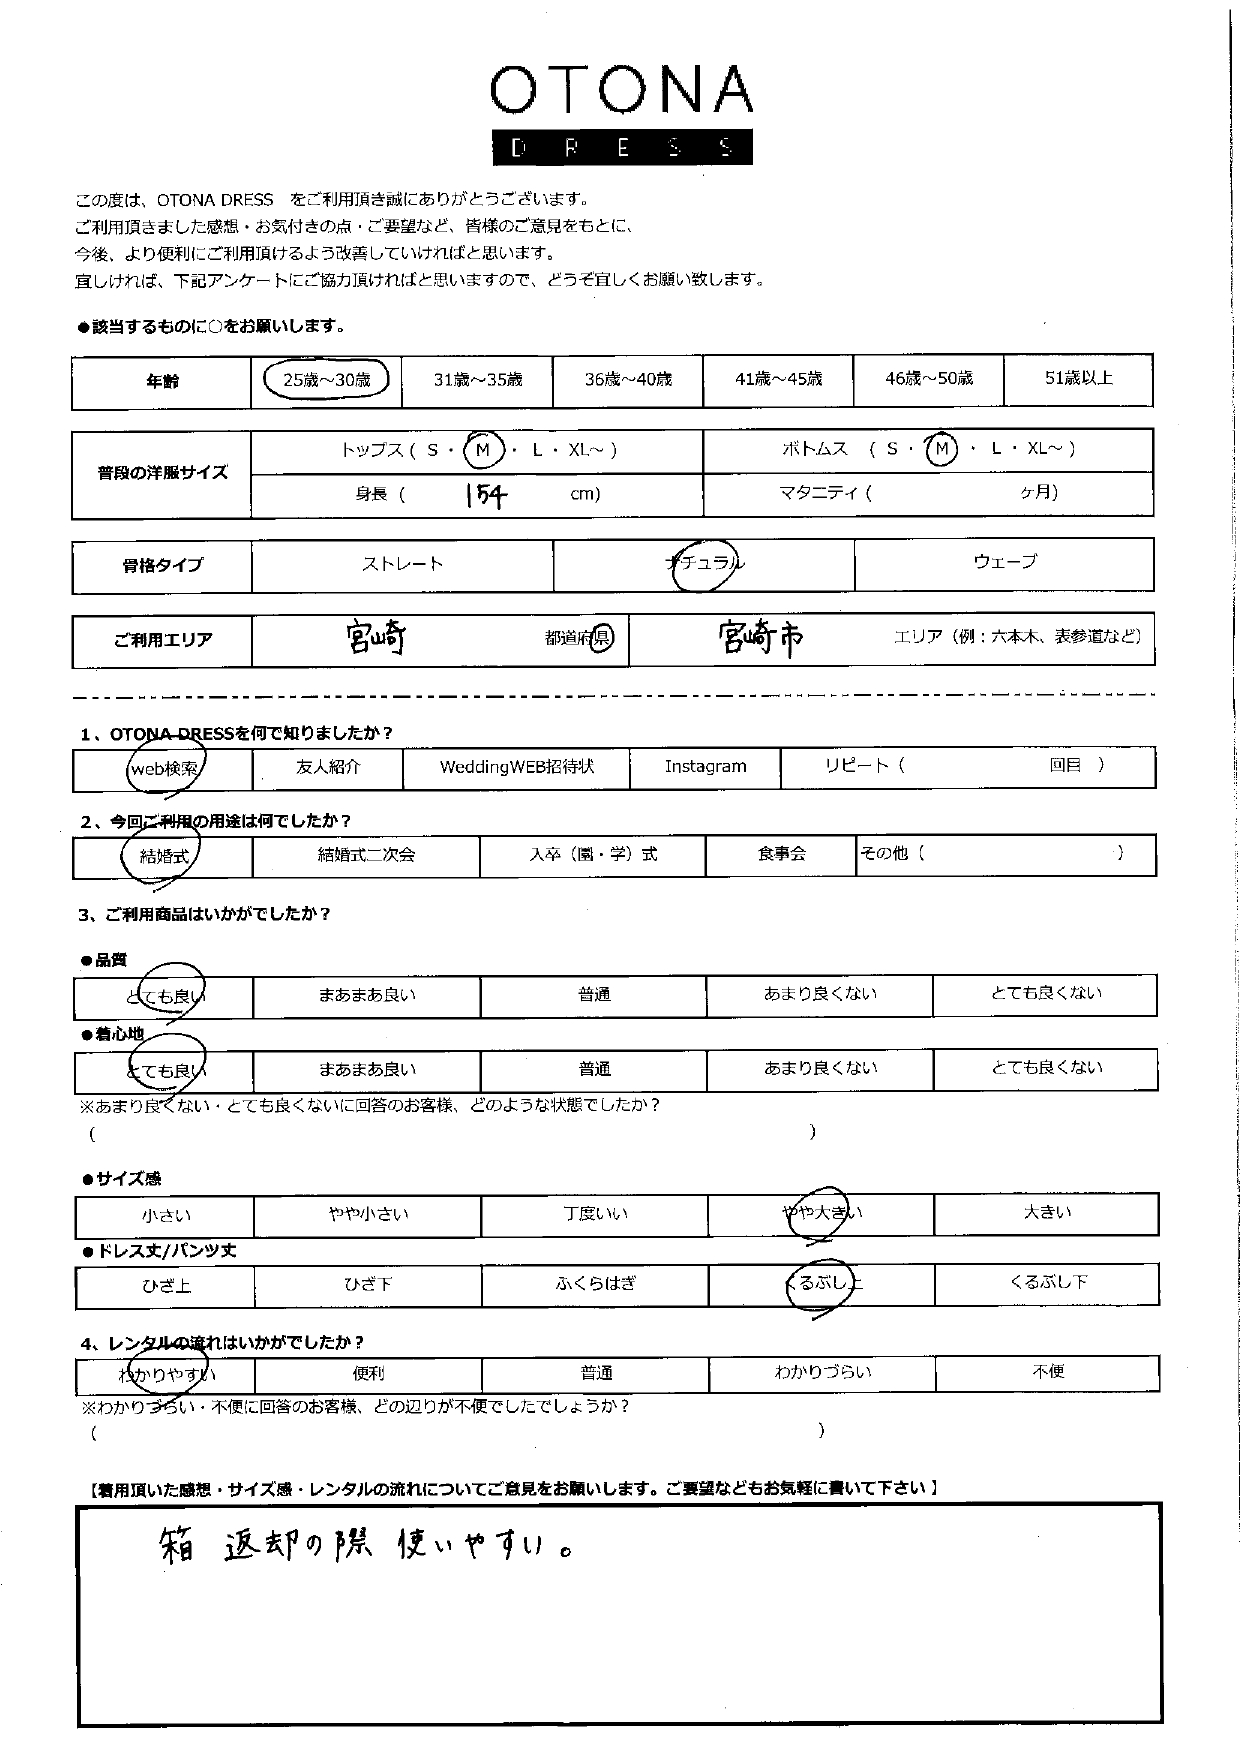 OTONA
DRESS
この度は、OTONA DRESS をご利用頂き誠にありがとうございます。
ご利用頂きました感想・お気付きの点・ご要望など、皆様のご意見をもとに、
今後、より便利にご利用頂けるよう改善していければと思います。
宜しければ、下記アンケートにご協力頂ければと思いますので、どうぞ宜しくお願い致します。
●該当するものに○をお願いします。
年齢 25歳～30歳 31歳～35歳 36歳～40歳 41歳～45歳 46歳～50歳 51歳以上
普段の洋服サイズ トップス ( S ・ M ・ L ・ XL～ ) ボトムス ( S ・ M ・ L ・ XL～ )
身長 ( 154 cm) マタニティ ( ケ月)
骨格タイプ ストレート ナチュラル ウェーブ
ご利用エリア 宮崎 都道府県 宮崎市 エリア（例：六本木、表参道など）
1、OTONA DRESSを何で知りましたか？
web検索 友人紹介 WeddingWEB招待状 Instagram リピート ( 回目 )
2、今回ご利用の用途は何でしたか？
結婚式 結婚式二次会 入卒（園・学）式 食事会 その他 ( )
3、ご利用商品はいかがでしたか？
●品質
とても良い まあまあ良い 普通 あまり良くない とても良くない
●着心地
とても良い まあまあ良い 普通 あまり良くない とても良くない
※あまり良くない・とても良くないに回答のお客様、どのような状態でしたか？
( )
●サイズ感
小さい やや小さい 丁度いい やや大きい 大きい
●ドレス丈/パンツ丈
ひざ上 ひざ下 ふくらはぎ くるぶし上 くるぶし下
4、レンタルの流れはいかがでしたか？
わかりやすい 便利 普通 わかりづらい 不便
※わかりづらい・不便に回答のお客様、どの辺りが不便でしたでしょうか？
( )
【着用頂いた感想・サイズ感・レンタルの流れについてご意見をお願いします。ご要望などもお気軽に書いて下さい】
箱 返却の際 使いやすい。